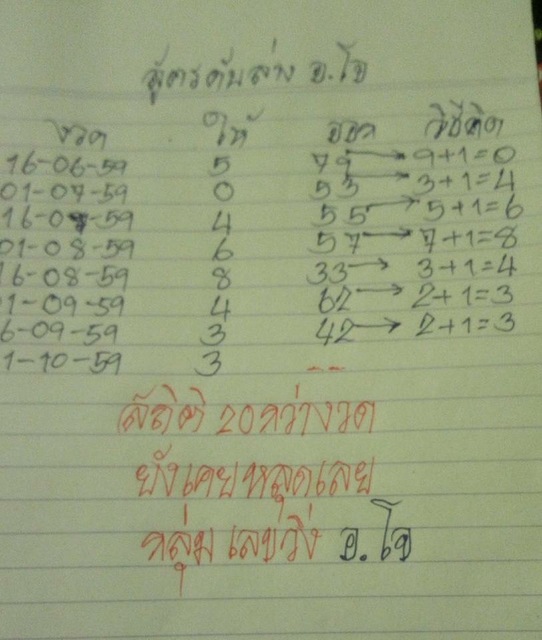 สูตรดับล่าง อ.โจ
งวด ให้ ออก วิธีคิด
16-06-59 5 79 → 9+1=0
01-07-59 0 53 → 3+1=4
16-07-59 4 55 → 5+1=6
01-08-59 6 57 → 7+1=8
16-08-59 8 33 → 3+1=4
01-09-59 4 62 → 2+1=3
6-09-59 3 42 → 2+1=3
1-10-59 3 --
สถิติ 20กว่างวด
ยังเคยหลุดเลย
กลุ่ม เลขวิ่ง อ.โจ